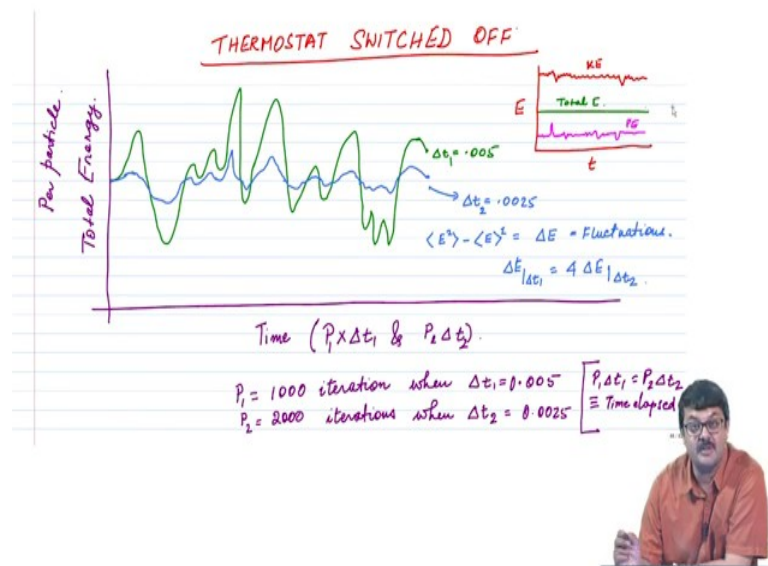 THERMOSTAT SWITCHED OFF
Per particle.
Total Energy.
KE
E
Total E.
PE
t
Δt₁ = .005
Δt₂ = .0025
⟨E²⟩ - ⟨E⟩² = ΔE = Fluctuations.
ΔE|Δt₁ = 4 ΔE|Δt₂
Time (P₁ x Δt₁ & P₂ Δt₂).
P₁ = 1000 iteration when Δt₁ = 0.005
P₂ = 2000 iterations when Δt₂ = 0.0025
P₁Δt₁ = P₂Δt₂
≡ Time elapsed